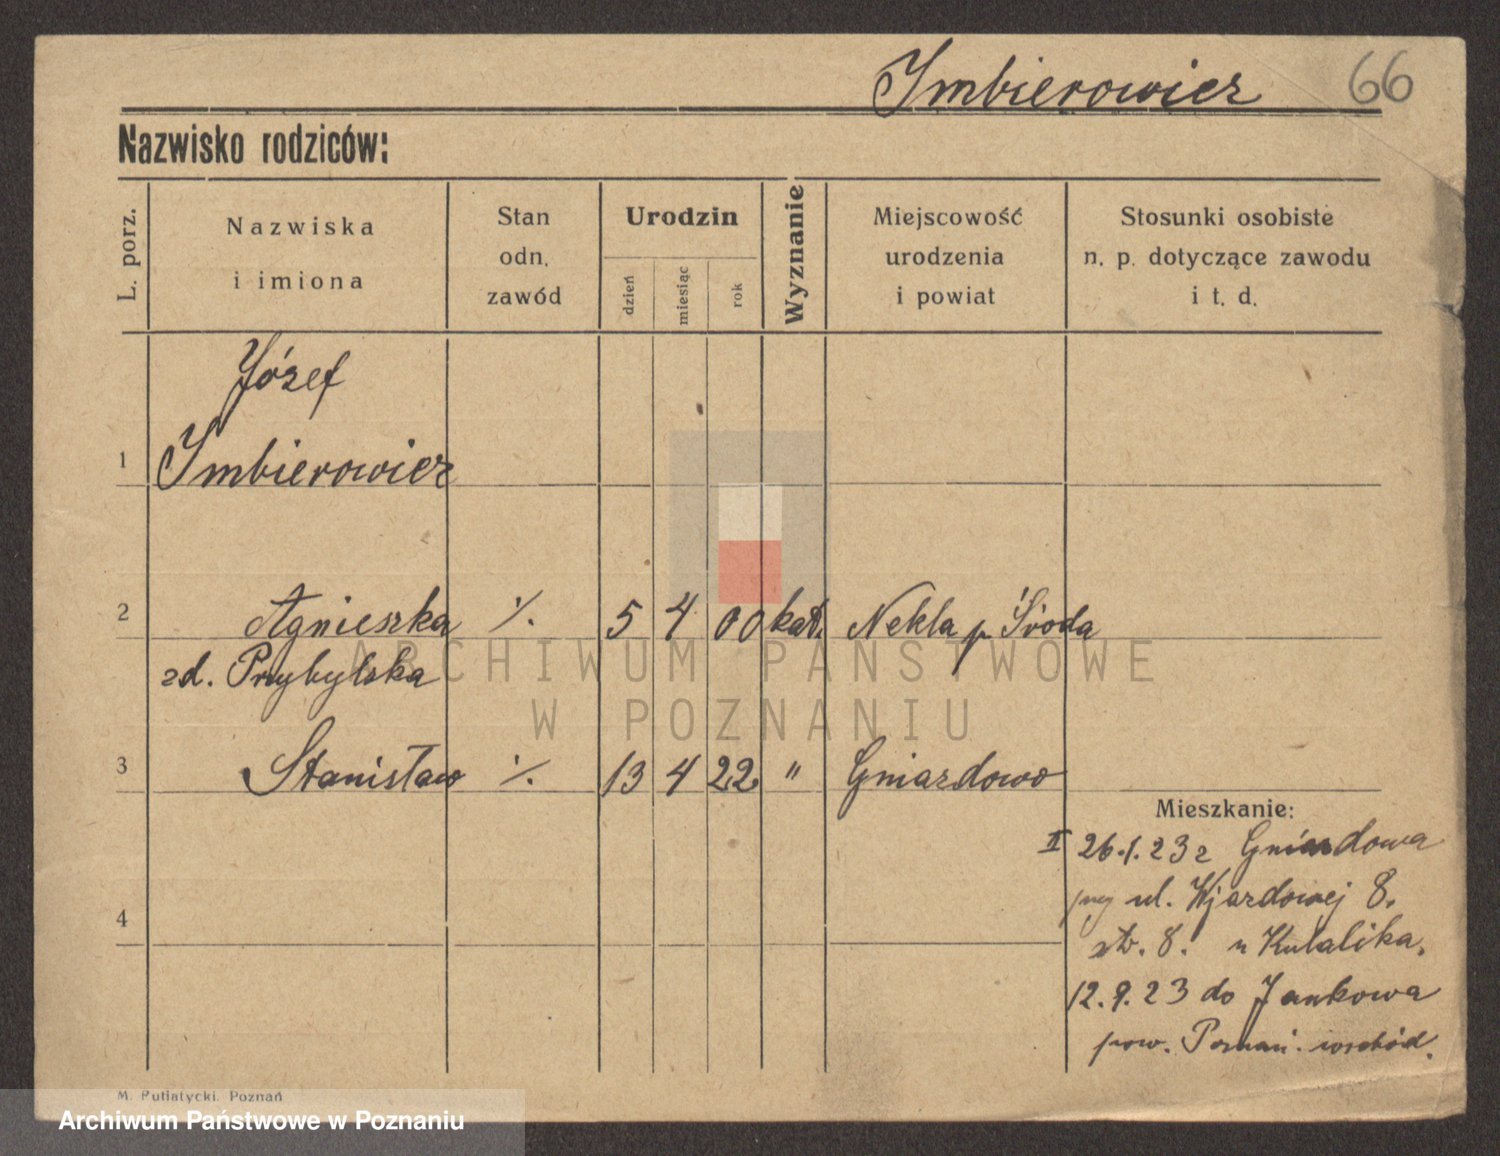 Imbierowicz 66
Nazwisko rodziców:
L. porz.
Nazwiska
i imiona
Stan
odn.
zawód
Urodzin
dzień
miesiąc
rok
Wyznanie
Miejscowość
urodzenia
i powiat
Stosunki osobiste
n. p. dotyczące zawodu
i t. d.
Józef
1 Imbierowicz
2 Agnieszka ·/. 5 4 00 kat. Nekla p. Środa
zd. Przybylska
ARCHIWUM PAŃSTWOWE
W POZNANIU
3 Stanisław ·/. 13 4 22 " Gniazdowo
Mieszkanie:
II 26.1.23 z Gniazdowa
przy ul. Wjazdowej 8.
4
str. 8. u Kubalika.
12.9.23 do Jankowa
pow. Poznań. wschód.
M. Putiatycki. Poznań
Archiwum Państwowe w Poznaniu